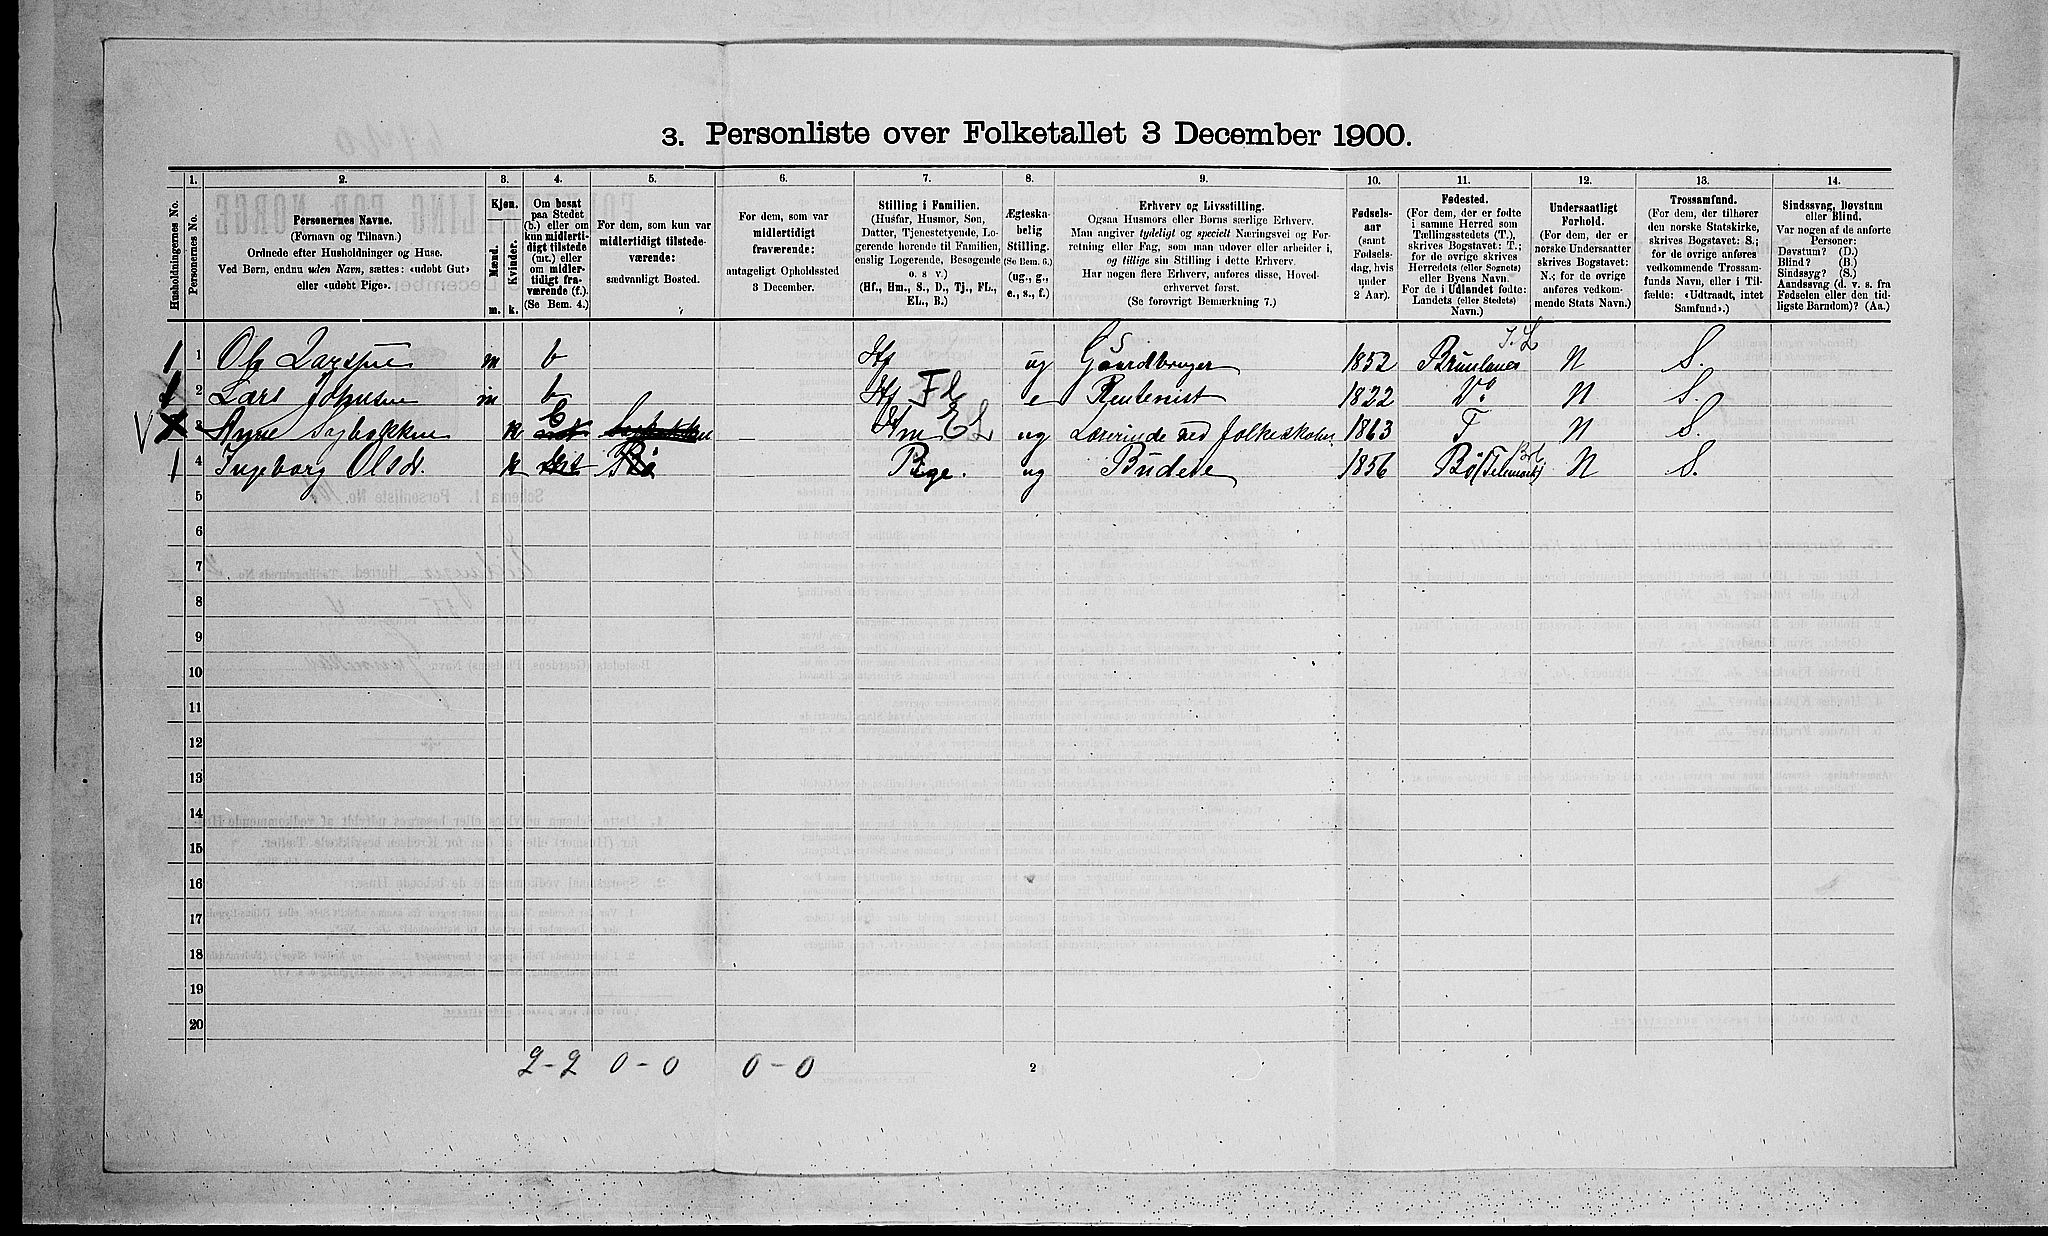 3. Personliste over Folketallet 3 December 1900.
1. 2. 3. 4. 5. 6. 7. 8. 9. 10. 11. 12. 13. 14.
Husholdningernes No.
Personernes No.
Personernes Navne.
(Fornavn og Tilnavn.)
Ordnede efter Husholdninger og Huse.
Ved Børn, endnu uden Navn, sættes: «udøbt Gut»
eller «udøbt Pige».
Kjøn.
Mænd.
Kvinder.
m. k.
Om bosat
paa Stedet
(b.) eller om
kun midlerti-
digt tilstede
(mt.) eller
om midler-
tidigt fra-
værende (f.).
(Se Bem. 4.)
For dem, som kun var
midlertidigt tilstede-
værende:
sædvanligt Bosted.
For dem, som var
midlertidigt
fraværende:
antageligt Opholdssted
3 December.
Stilling i Familien.
(Husfar, Husmor, Søn,
Datter, Tjenestetyende, Lo-
gerende hørende til Familien,
enslig Logerende, Besøgende
o. s v.)
(Hf., Hm., S., D., Tj., FL.,
EL., B.)
Ægteska-
belig
Stilling.
(Se Bem. 6.)
(ug., g.,
e., s., f.)
Erhverv og Livsstilling.
Ogsaa Husmors eller Børns særlige Erhverv.
Man angiver tydeligt og specielt Næringsvei og For-
retning eller Fag, som man udøver eller arbeider i,
og tillige sin Stilling i dette Erhverv.
Har nogen flere Erhverv, anføres disse, Hoved-
erhvervet først.
(Se forøvrigt Bemærkning 7.)
Fødsels-
aar
(samt
Fødsels-
dag, hvis
under
2 Aar).
Fødested.
(For dem, der er fødte
i samme Herred som
Tællingsstedets (T.),
skrives Bogstavet: T.;
for de øvrige skrives
Herredets (eller Sognets)
eller Byens Navn.
For de i Udlandet fødte:
Landets (eller Stedets)
Navn.)
Undersaatligt
Forhold.
(For dem, der er
norske Undersaatter
skrives Bogstavet:
N.; for de øvrige
anføres vedkom-
mende Stats Navn.)
Trossamfund.
(For dem, der tilhører
den norske Statskirke,
skrives Bogstavet: S.;
for de øvrige anføres
vedkommende Trossam-
funds Navn, eller i Til-
fælde: «Udtraadt, intet
Samfund».)
Sindssvag, Døvstum
eller Blind.
Var nogen af de anførte
Personer:
Døvstum? (D.)
Blind? (B.)
Sindssyg? (S.)
Aandssvag (d. v. s. fra
Fødselen eller den tid-
ligste Barndom)? (Aa.)
1 1 Ole Larssen m b Hf ug Gaardbruger 1852 Brunlanes J.L. N S.
2 Lars Johnsen m b Hf FL e Rentenist 1822 Do N S.
V 3 Anne Sagbakken k b mt Sagbakken Hm EL ug Lærerinde ved folkeskolen 1863 T N S.
1 4 Ingeborg Olsdt. k mt Bø Pige. ug Budeie 1856 Bø (Telemark) Brt N S.
5
6
7
8
9
10
11
12
13
14
15
16
17
18
19
20
2-2 0-0 0-0
2